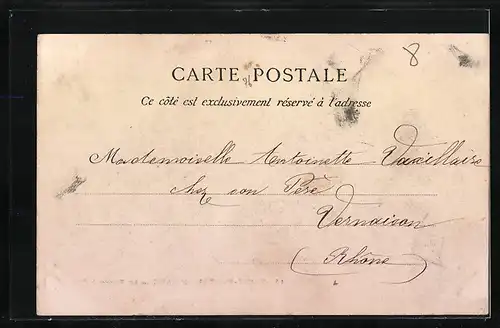 8
CARTE POSTALE
Ce côté est exclusivement réservé à l'adresse
Mademoiselle Antoinette
chez son Père
Vernaison
(Rhône)